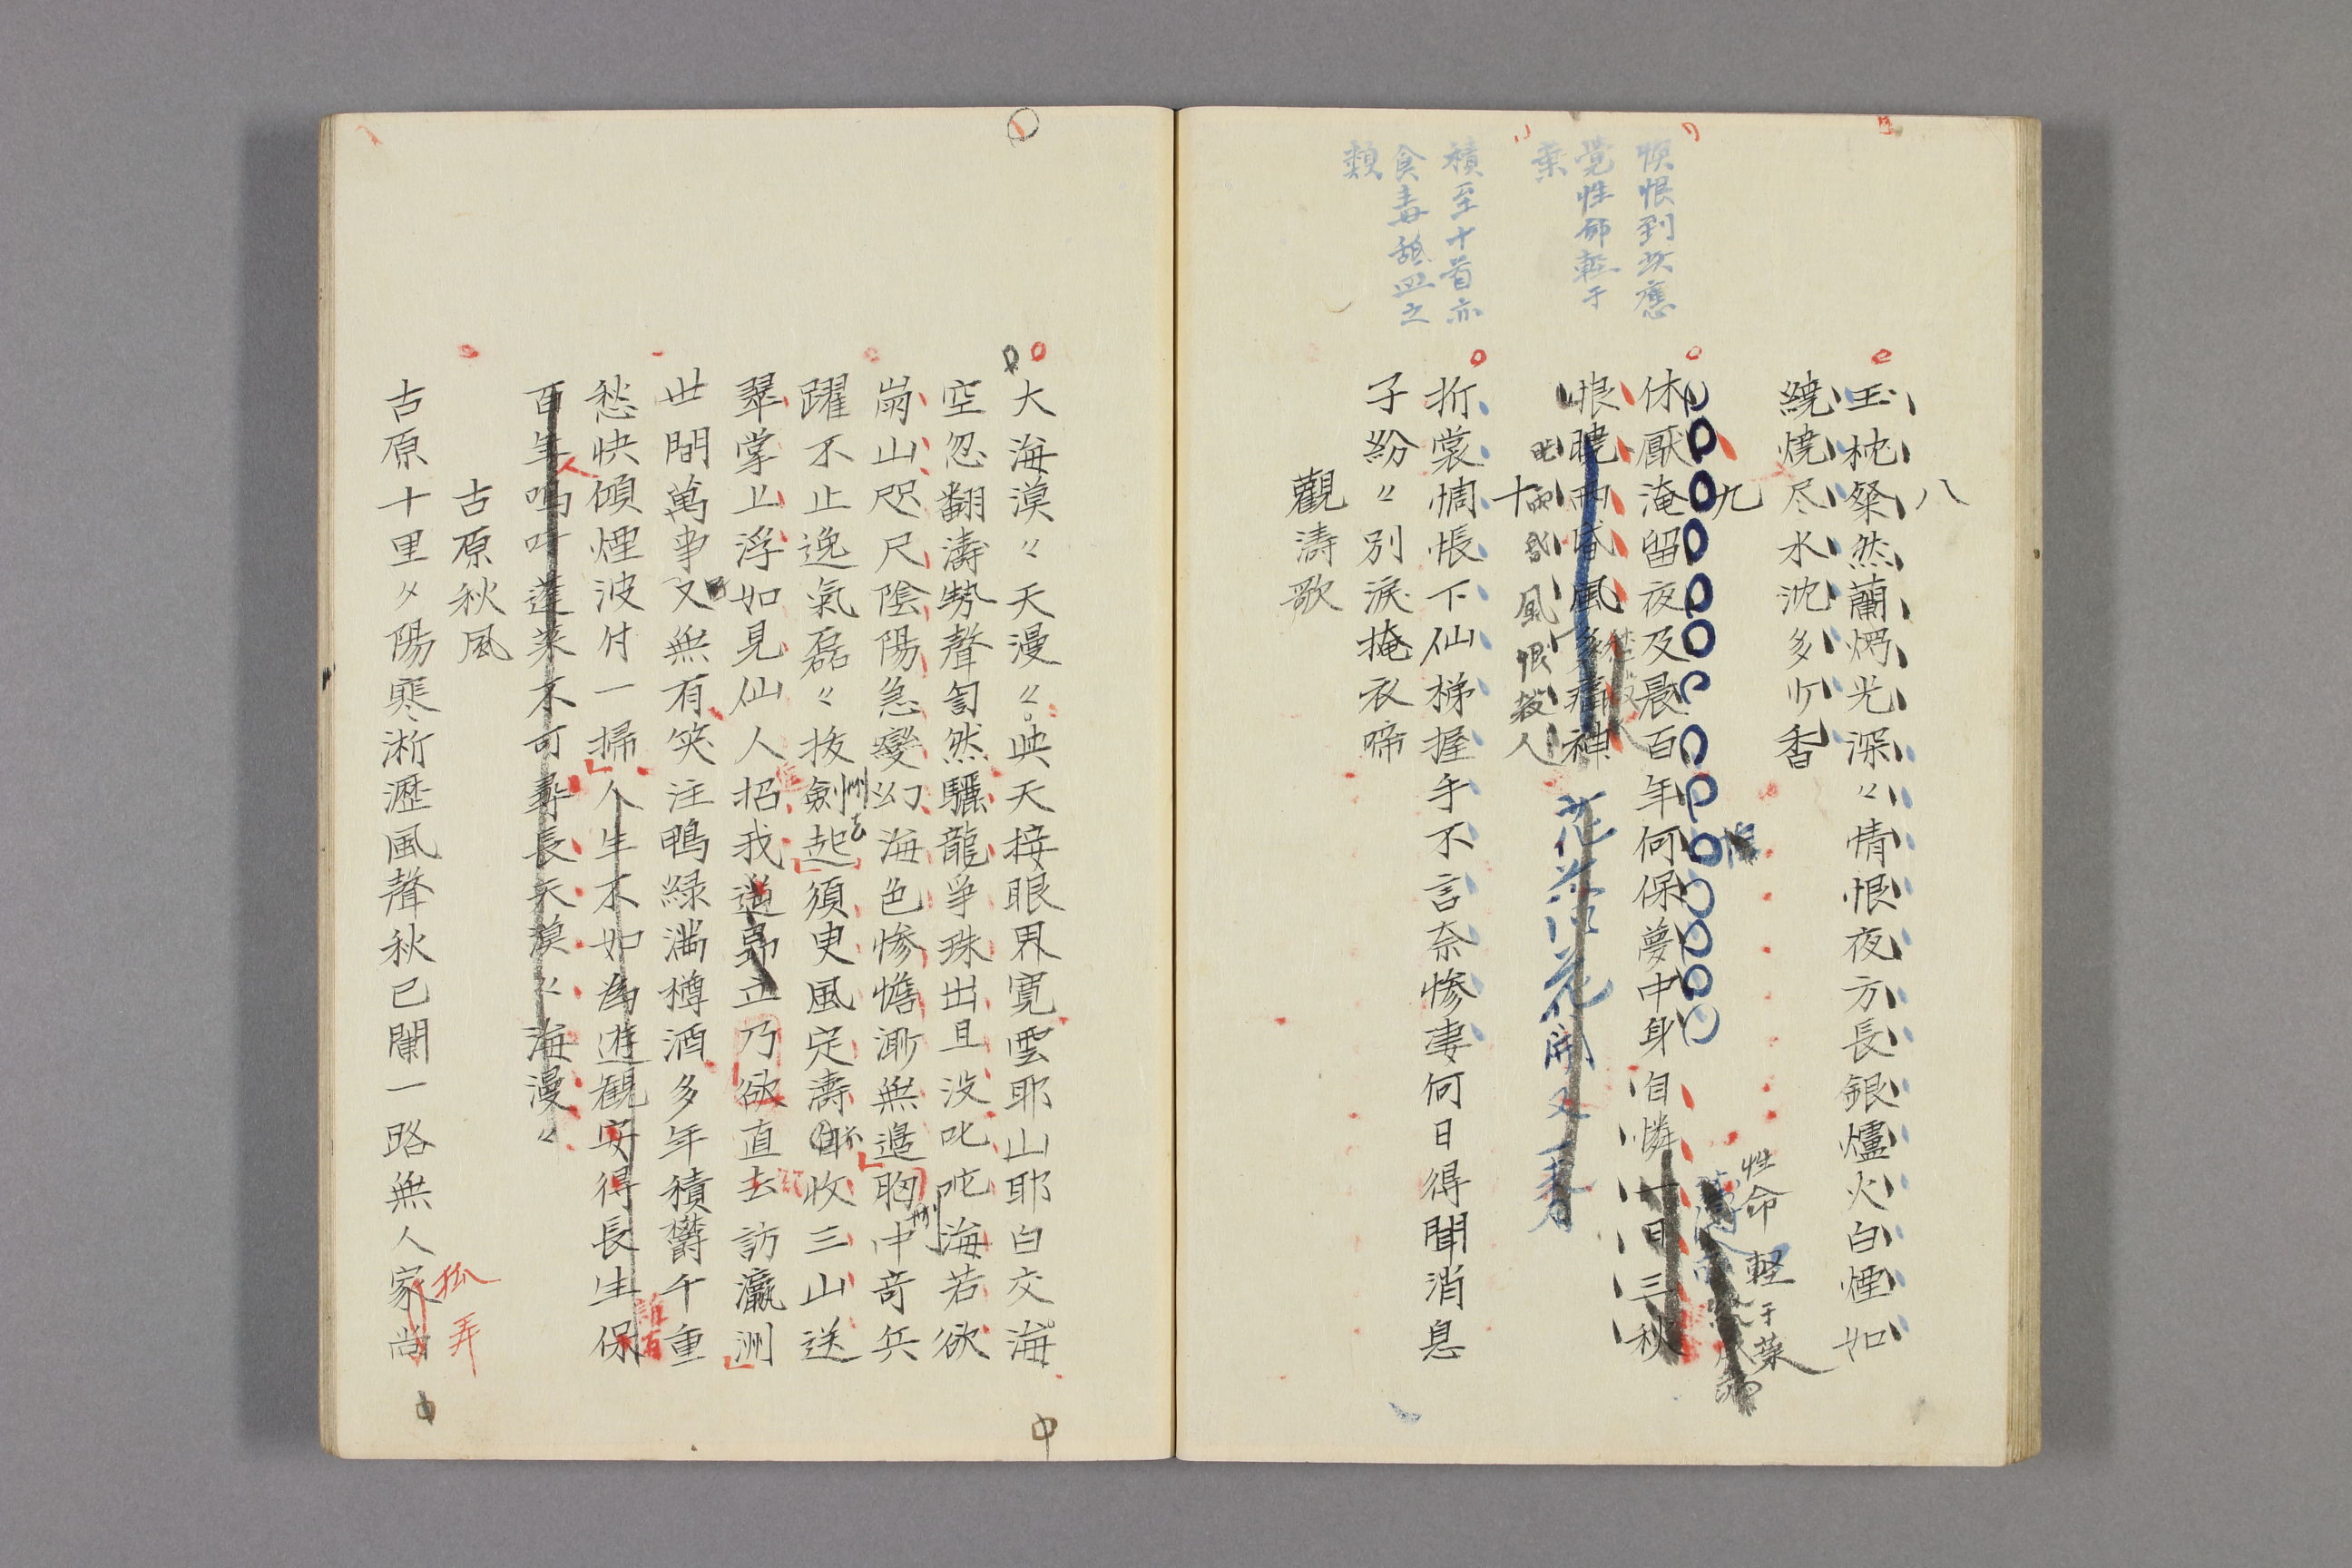 八
玉枕粲然蘭焫光深〻情恨夜方長銀爐火白煙如
繞燒尽水沈多少香
九
休厭淹留夜及晨百年何保夢中身自憐一日三秋
恨曉雨昏風多痛神
花落花開又一春
性命軽于葉
昏風恨殺人
十
折裳惆悵下仙梯握手不言奈惨凄何日得聞消息
子紛〻別淚掩衣啼
觀濤歌
恨到次應
覚性命軽于
葉
積至十首亦
食毒舐皿之
類
大海漠〻天漫〻與天接眼界寛雲耶山耶白交海
空忽翻濤勢聲訇然驪龍爭珠出且没叱咤海若欲
崩山咫尺陰陽急變幻海色惨憺渺無邉胸中奇兵
躍不止逸氣磊〻抜劍起須臾風定濤自收三山送
翠掌上浮如見仙人招我道昂立乃欲直去訪瀛洲
世間萬事又無有笑注鴨緑満樽酒多年積欝千重
愁快傾煙波付一掃人生不如為遊観安得長生保
百年嗚呼蓬莱不可尋長天漠〻海漫〻
古原秋風
古原十里夕陽寒淅瀝風聲秋已闌一路無人家尚
孤
弄